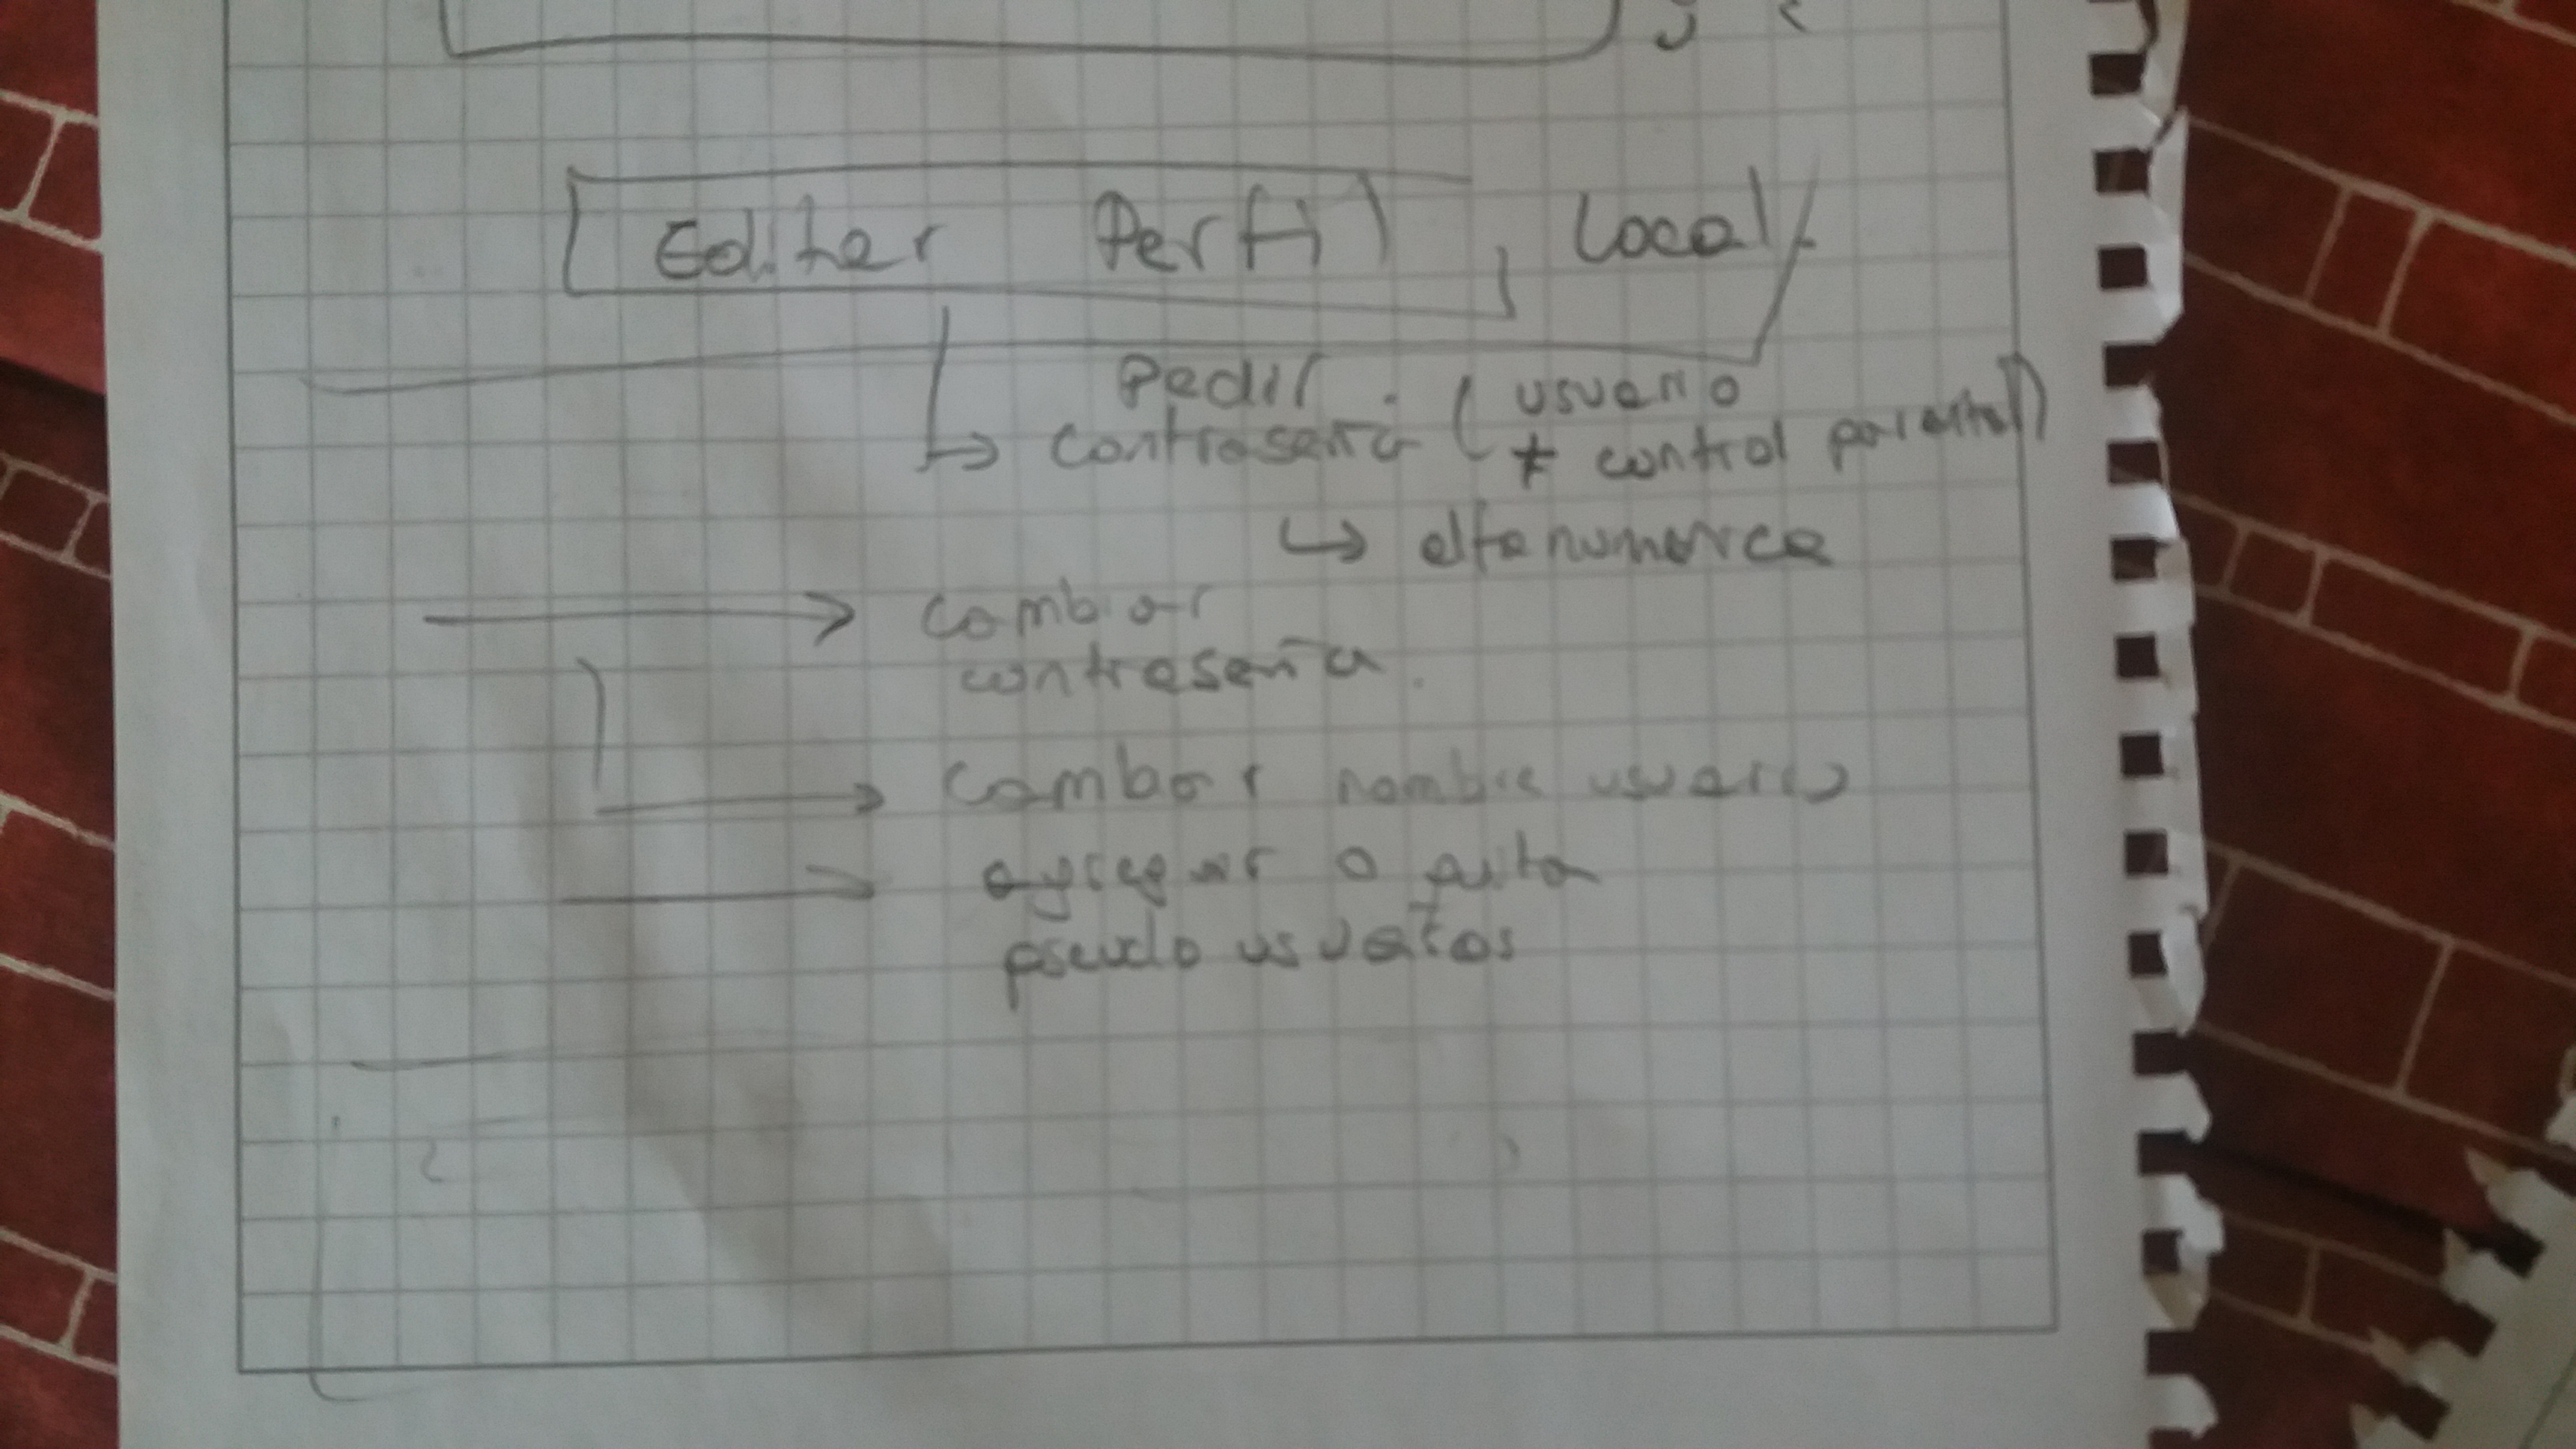 Editar Perfil Local
Pedir
contraseña (usuario
≠ control parental)
↳ alfanumerica
→ cambiar
contraseña.
→ cambiar nombre usuario
→ agregar o quitar
pseudo usuarios